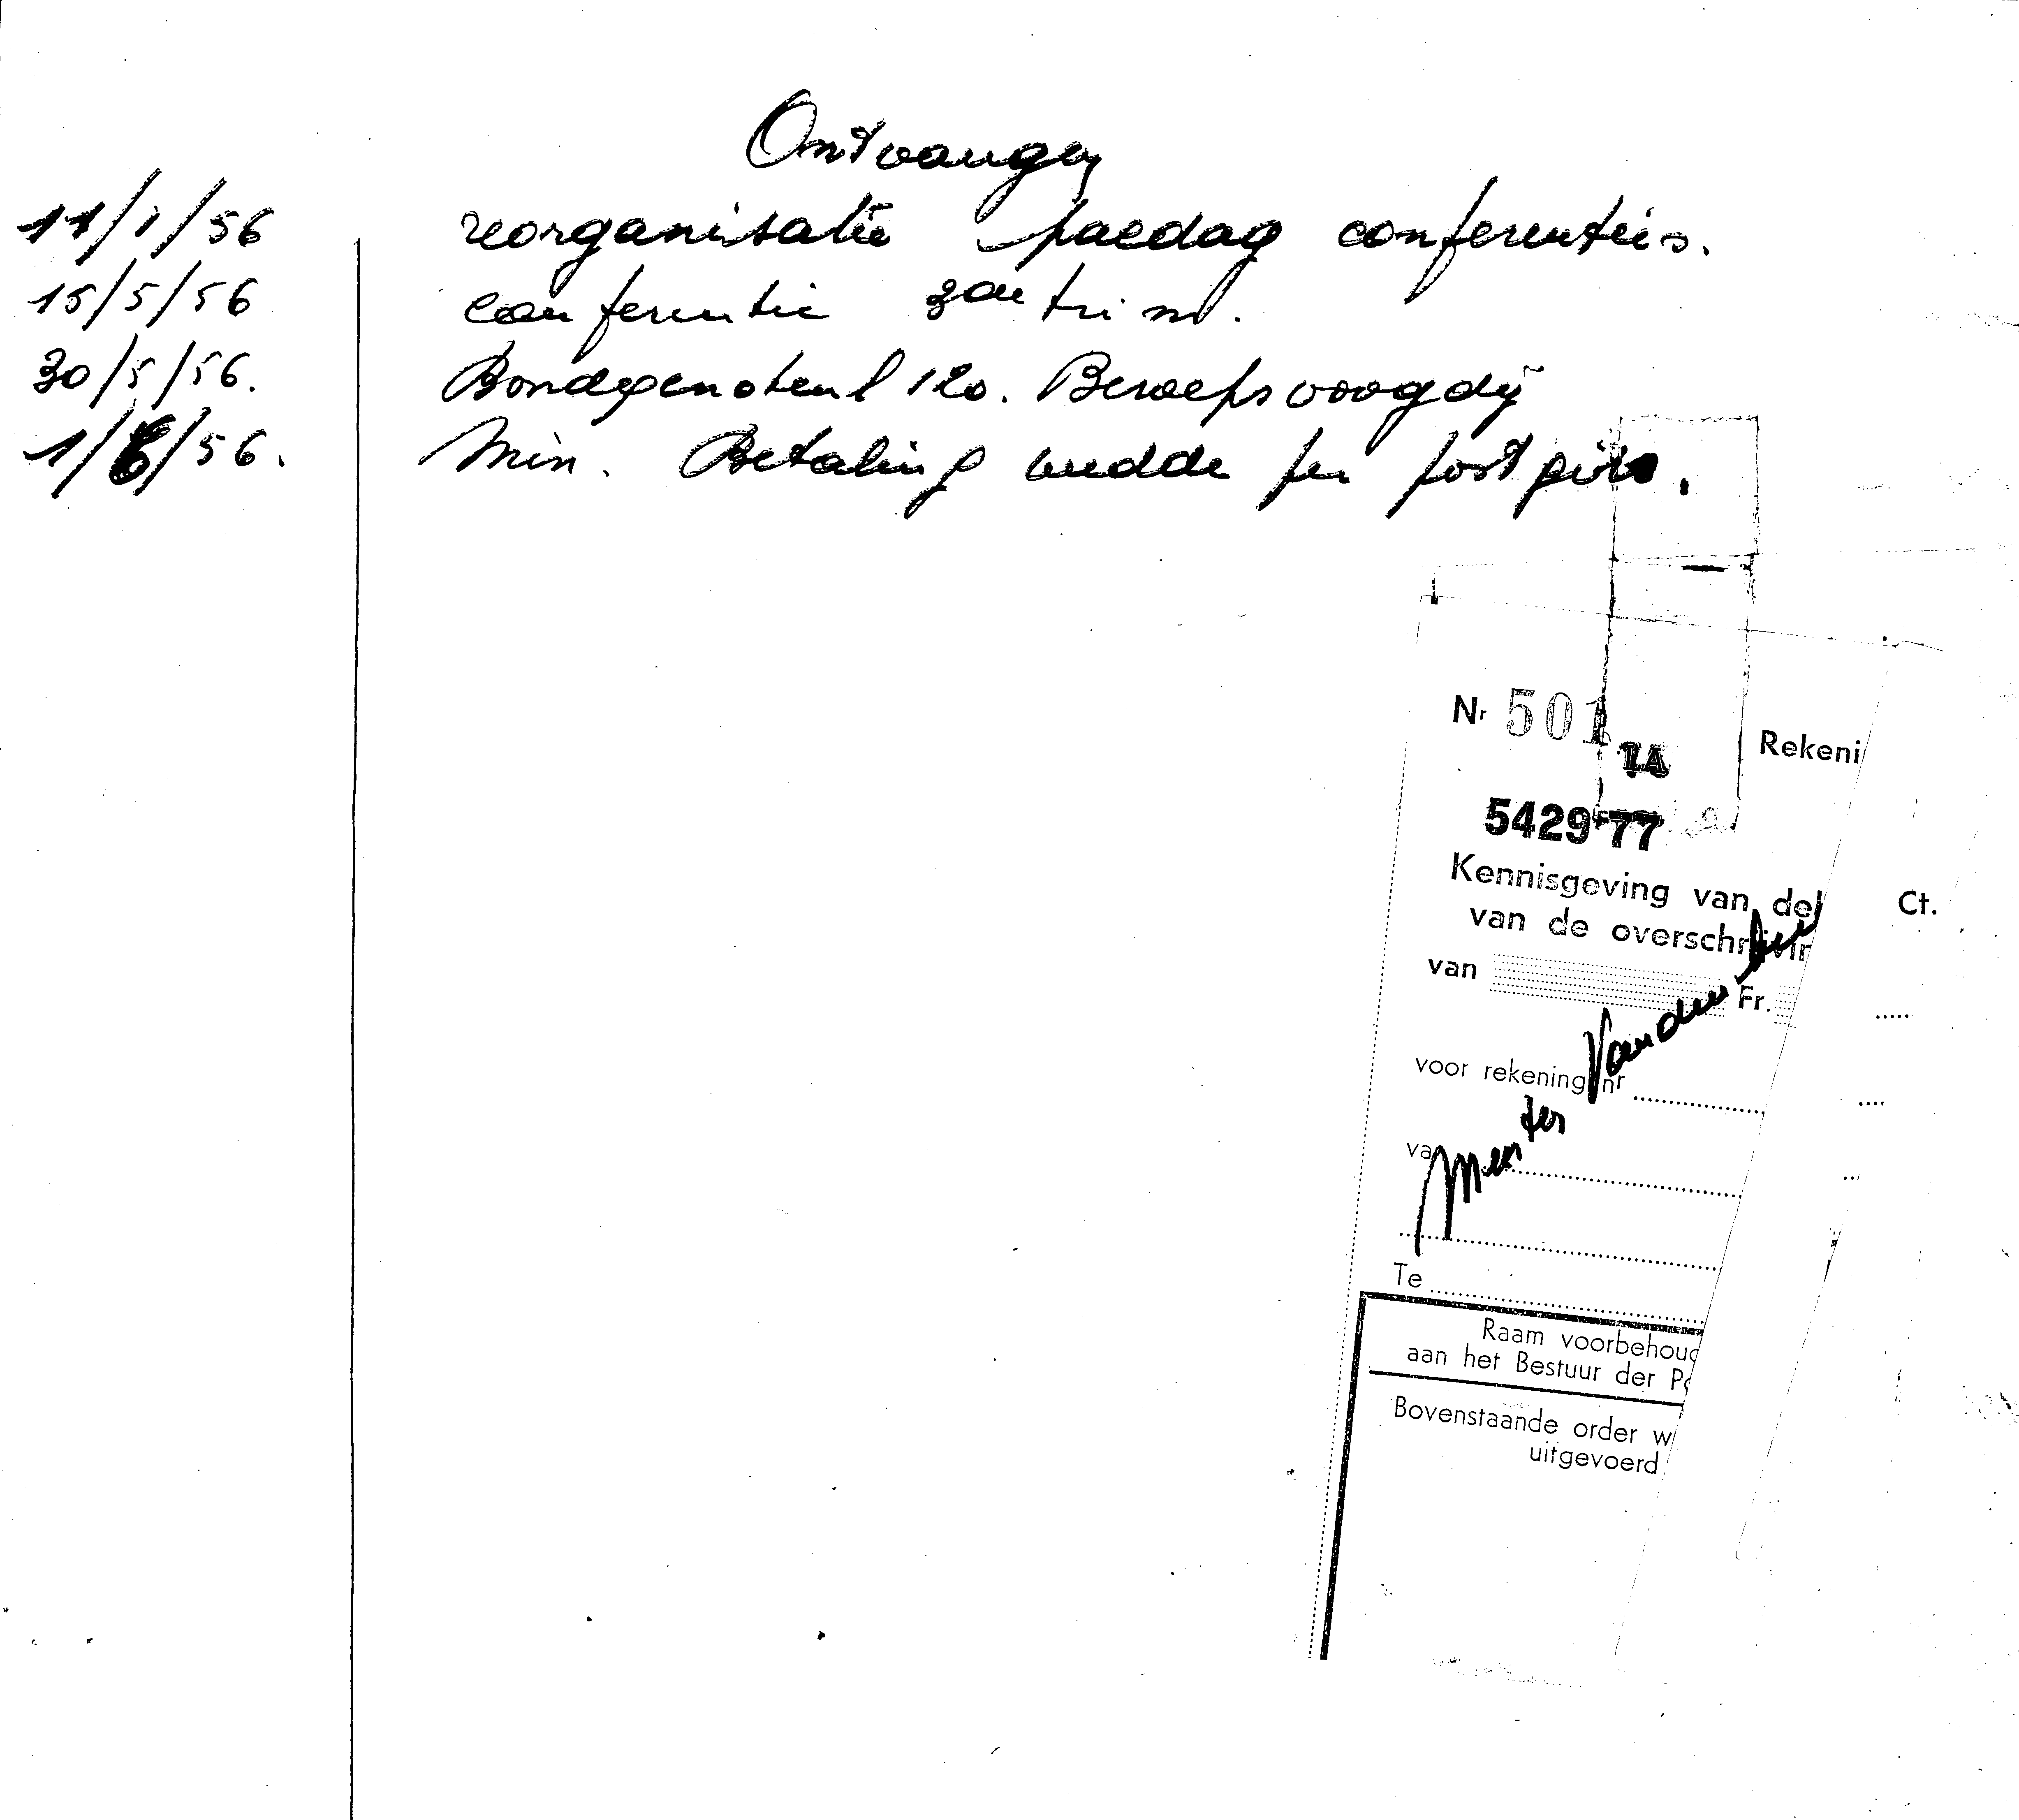 Ontvangen
11/1/56 reorganisatie paedag conferenties.
15/5/56 conferentie 3de trim.
30/5/56. Bondgenotenl 120. Beroepsvoogdij
1/6/56. Min. Betaling wedde per postgiro.
Nr 501 1A Rekeni
5429 77
Kennisgeving van deb Ct.
van de overschrijvin
van Fr.
voor rekening nr
Menten Vanden
va
Te
Raam voorbehoud
aan het Bestuur der Po
Bovenstaande order w
uitgevoerd